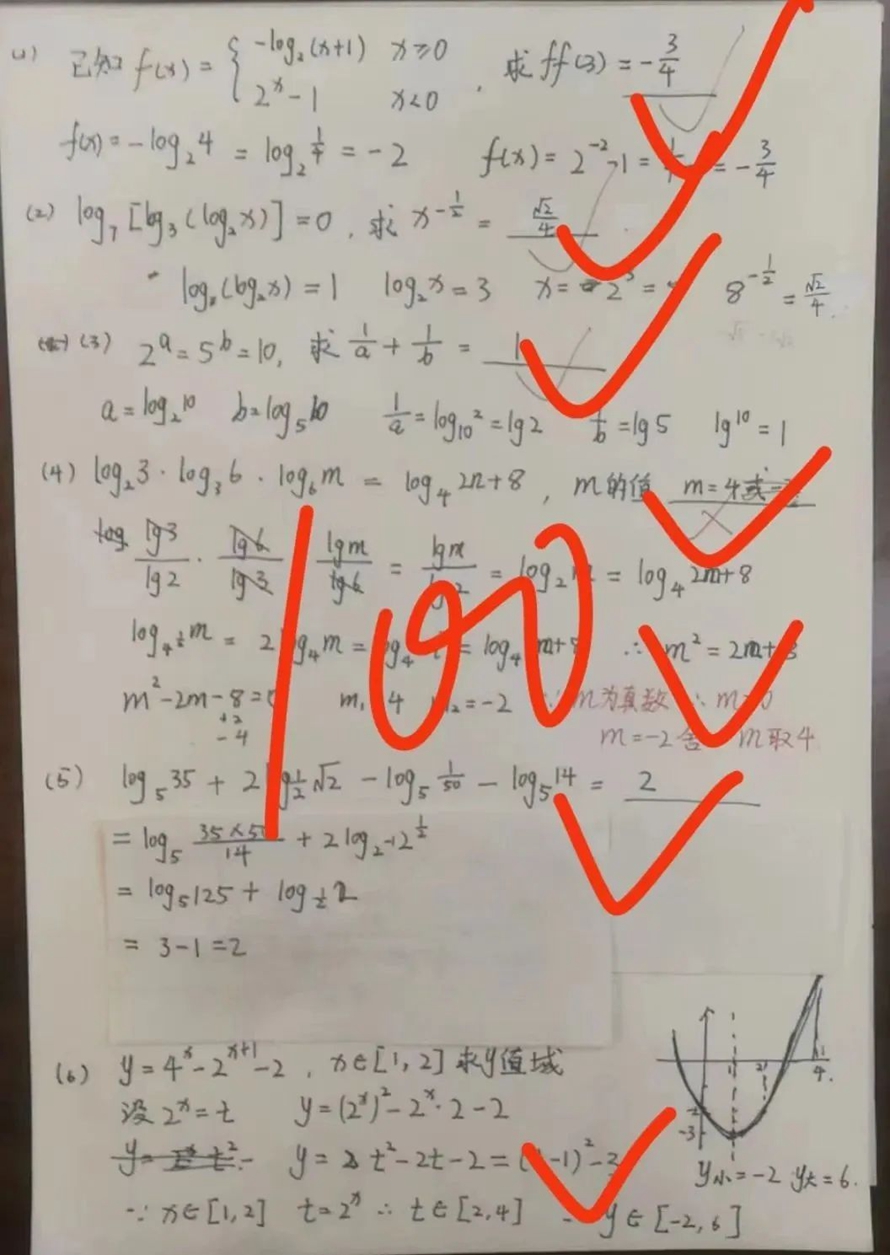 (1) 已知 f(x) = { -log₂(x+1) x≥0
2ˣ-1 x<0 , 求 ff(3) = -3/4
f(x) = -log₂4 = log₂ 1/4 = -2 f(x) = 2⁻²-1 = = -3/4
(2) log₇[log₃(log₂x)] = 0 , 求 x^(-1/2) = √2/4
(log₂x) = 1 log₂x = 3 x = 2³ = 8^(-1/2) = √2/4.
(3) 2ᵃ = 5ᵇ = 10, 求 1/a + 1/b = 1
a = log₂10 b = log₅10 1/a = log₁₀2 = lg2 1/b = lg5 lg10 = 1
(4) log₂3 · log₃6 · log₆m = log₄ 2m+8 , m的值 m=4
lg3/lg2 · lg6/lg3 lgm/lg6 = lgm/lg2 = log₂m = log₄ 2m+8
log_(4^(1/2)) m = 2log₄m = log₄ = log₄ m+8 ∴ m² = 2m+8
m²-2m-8=0 m₁ 4 m₂=-2 ∵ m为真数 ∴ m>0
+2
-4 m=-2舍 m取4
(5) log₅35 + 2log_(1/2)√2 - log₅ 1/50 - log₅14 = 2
= log₅ (35×50)/14 + 2log_(2^-1) 2^(1/2)
= log₅125 + log_(1/2) 2
= 3-1=2
(6) y=4ˣ-2ˣ⁺¹-2 , x∈[1,2] 求y值域
设 2ˣ=t y=(2ˣ)²-2ˣ·2-2
y= t²-2t-2 = (t-1)²-3
∵ x∈[1,2] t=2ˣ ∴ t∈[2,4] ∴ y∈[-2,6]
1 2 4.
-2
-3
y小=-2 y大=6.
100